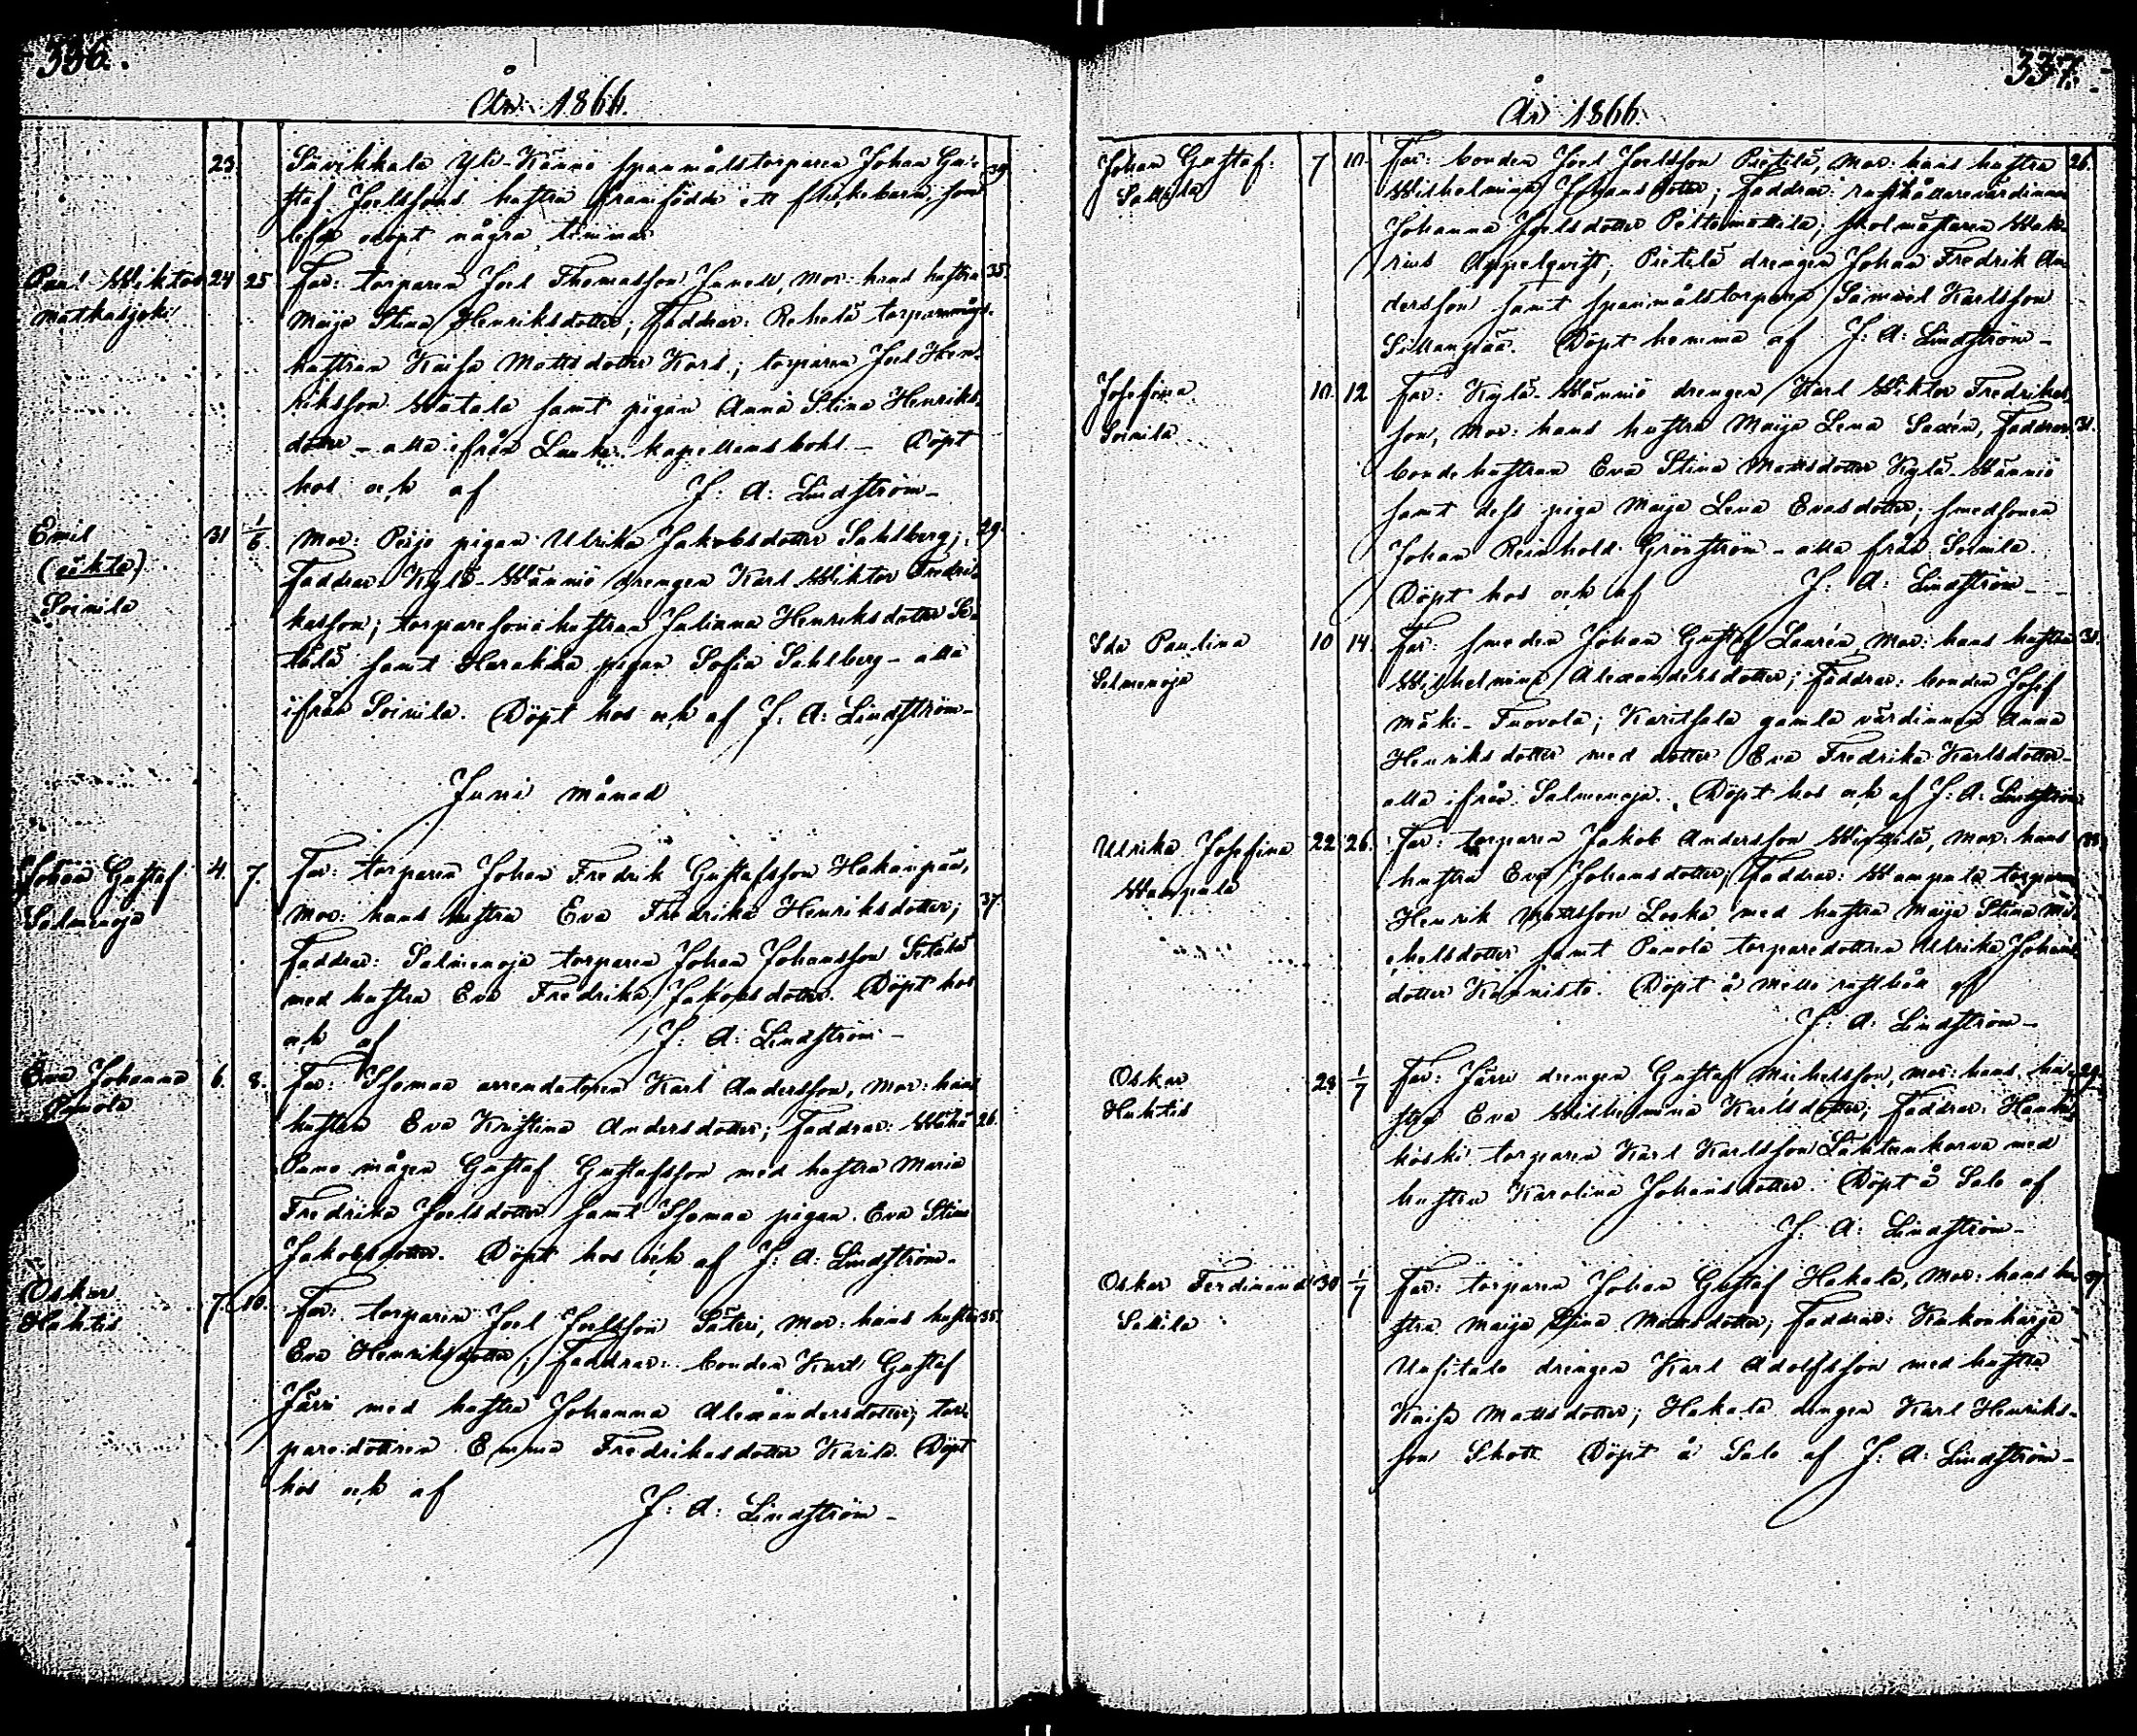 336.
År 1866.
23. Sävikkala Yli-Kännö spanmålstorparen Johan Gu- 39.
staf Joelssons hustru framfödde ett flickebarn, som
lefde odöpt några timmar
Paul Wiktor 24 25 Far: torparen Joel Thomasson Junell, Mor: hans hustru 35.
Matkusjoki Maija Stina Henriksdotter; Faddrar: Rehelä torparemågs-
hustrun Kaisa Mattsdotter Kors; torparen Joel Hen-
riksson samt pigan Anna Stina Henriks-
dotter – alla ifrån kapellansbohl. – Döpt
hos och af J: A: Lindström –
Emil 31 1/6. Mor: Peijo pigan Ulrika Jakobsdotter Sahlberg; 29.
(oäkta) Faddrar: Kylä-Wänniö drengen Karl Wiktor Fredri-
Soinila ksson; torparesonshustrun Juliana Henriksdotter Se-
tälä samt Harakka pigan Sofia Sahlberg – alla
ifrån Soinila. Döpt hos och af J: A: Lindström –
Juni månad
Johan Gustaf 4. 7. Far: torparen Johan Fredrik Gustafsson Hakanpää,
Salmenoja Mor: hans hustru Eva Fredrika Henriksdotter; 37.
Faddrar: Salmenoja torparen Johan Johansson Setälä
med hustru Eva Fredrika Jakobsdotter. Döpt hos
och af J: A: Lindström –
Eva Johanna 6. 8. Far: arrendatoren Karl Andersson, Mor: hans
Punola hustru Eva Kristina Andersdotter; Faddrar: Wähä 26.
Puno mågen Gustaf Gustafsson med hustru Maria
Fredrika Joelsdotter samt pigan Eva Stina
Jakobsdotter. Döpt hos och af J: A: Lindström –
Oskar 7. 10. Far: torparen Joel Joelsson Säteri, Mor: hans hustru 35.
Hahtis Eva Henriksdotter; Faddrar: bonden Karl Gustaf
Järvi med hustru Johanna Alexandersdotter; tor-
paredottren Emma Fredriksdotter Karila. Döpt
hos och af J: A: Lindström –
337.
År 1866.
Johan Gustaf 7 10. Far: bonden Joel Joelsson Pietilä, Mor: hans hustru 26.
Sattila Wilhelmina Johansdotter; Faddrar: rusthållarevärdinnan
Johanna Joelsdotter skolmästaren Mak-
rius Appelqvist; Pietilä drengen Johan Fredrik An-
dersson samt spanmålstorparen Samuel Karlsson
Sillanpää. Döpt hemma af J: A: Lindström –
Josefina 10. 12 Far: Kylä-Wänniö drengen Karl Wiktor Fredriks-
Soinila son, Mor: hans hustru Maija Lena Saxén, Faddrar: 31.
bondehustrun Eva Stina Mattsdotter Kylä-Wänniö
samt dess piga Maija Lena Evasdotter; smedsonen
Johan Reinhold Grönström – alla från Soinila.
Döpt hos och af J: A: Lindström –
Ida Paulina 10 14. Far: smeden Johan Gustaf Laurén, Mor: hans hustru 31.
Salmenoja Wilhelmina Alexandersdotter; Faddrar: bonden Josef
Mäki-Tuovola; Karitsala gamla värdinnan Anna
Henriksdotter med dotter Eva Fredrika Karlsdotter –
alla ifrån Salmenoja. Döpt hos och af J: A: Lindström
Ulrika Josefina 22 26. Far: torparen Jakob Andersson Mor: hans
Wampula hustru Eva Johansdotter; Faddrar: Wampula torparen
Henrik Mattsson Looka med hustru Maija Stina Mi-
chelsdotter samt Punola torparedottren Ulrika Johans-
dotter Kannisto. Döpt å af
J: A: Lindström –
Oskar 28 1/7 Far: Järvi drengen Gustaf Michelsson, Mor: hans hu- 29.
Hahtis stru Eva Wilhelmina Karlsdotter; Faddrar: Hanhi-
koski torparen Karl Karlsson Lähteenkorva med
hustru Karolina Johansdotter. Döpt å Salo af
J: A: Lindström –
Oskar Ferdinand 30 1/7 Far: torparen Johan Gustaf Hakala, Mor: hans hu-
Sattila stru Maija Stina Mattsdotter; Faddrar: Kukonharja
Uusitalo drengen Karl Adolfsson med hustru
Kaisa Mattsdotter; Hakala drengen Karl Henriks-
son Skott. Döpt å Salo af J: A: Lindström –